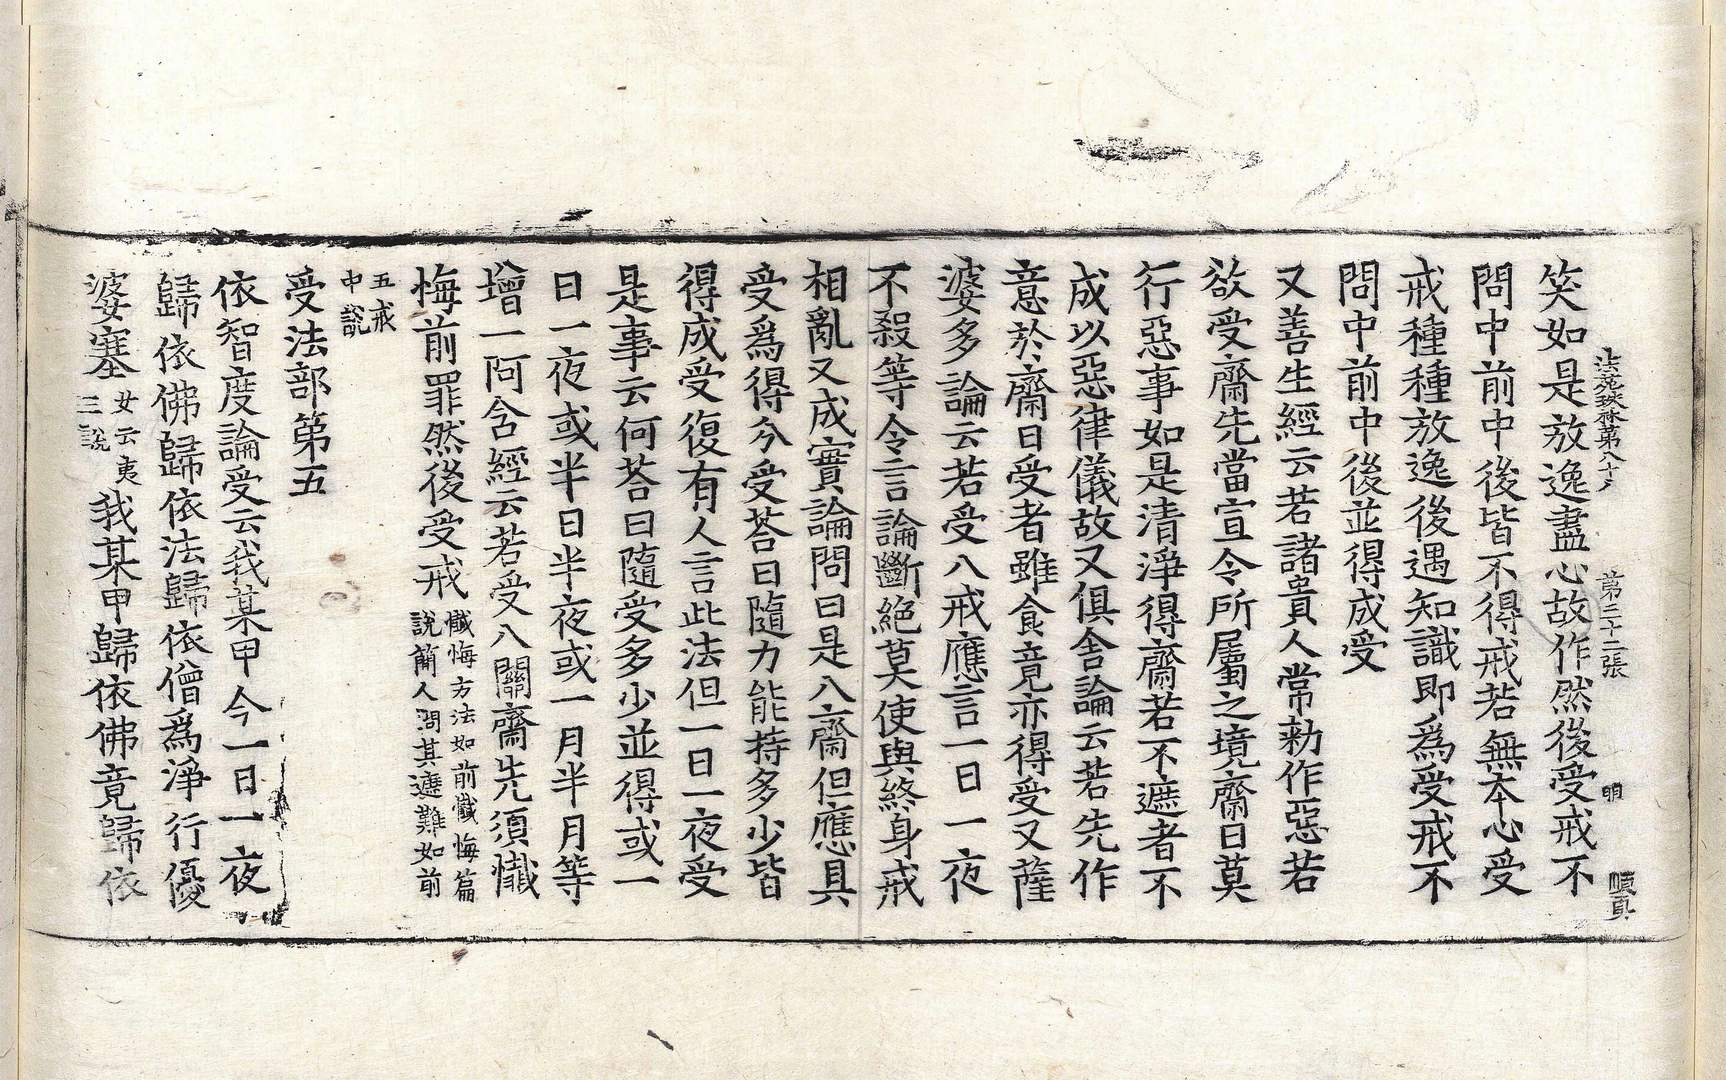 法苑珠林第八十八　第三十二張　明　順真
笑如是放逸盡心故作然後受戒不
問中前中後皆不得戒若無本心受
戒種種放逸後遇知識即爲受戒不
問中前中後並得成受
又善生經云若諸貴人常勑作惡若
欲受齋先當宣令所屬之境齋日莫
行惡事如是清淨得齋若不遮者不
成以惡律儀故又俱舍論云若先作
意於齋日受者雖食竟亦得受又薩
婆多論云若受八戒應言一日一夜
不殺等令言論斷絕莫使與終身戒
相亂又成實論問曰是八齋但應具
受爲得分受荅曰隨力能持多少皆
得成受復有人言此法但一日一夜受
是事云何荅曰隨受多少並得或一
日一夜或半日半夜或一月半月等
增一阿含經云若受八關齋先須懺
悔前罪然後受戒懺悔方法如前懺悔篇
說簡人問其遮難如前
五戒
中說
受法部第五
依智度論受云我某甲今一日一夜
歸依佛歸依法歸依僧爲淨行優
婆塞女云夷
三說我某甲歸依佛竟歸依